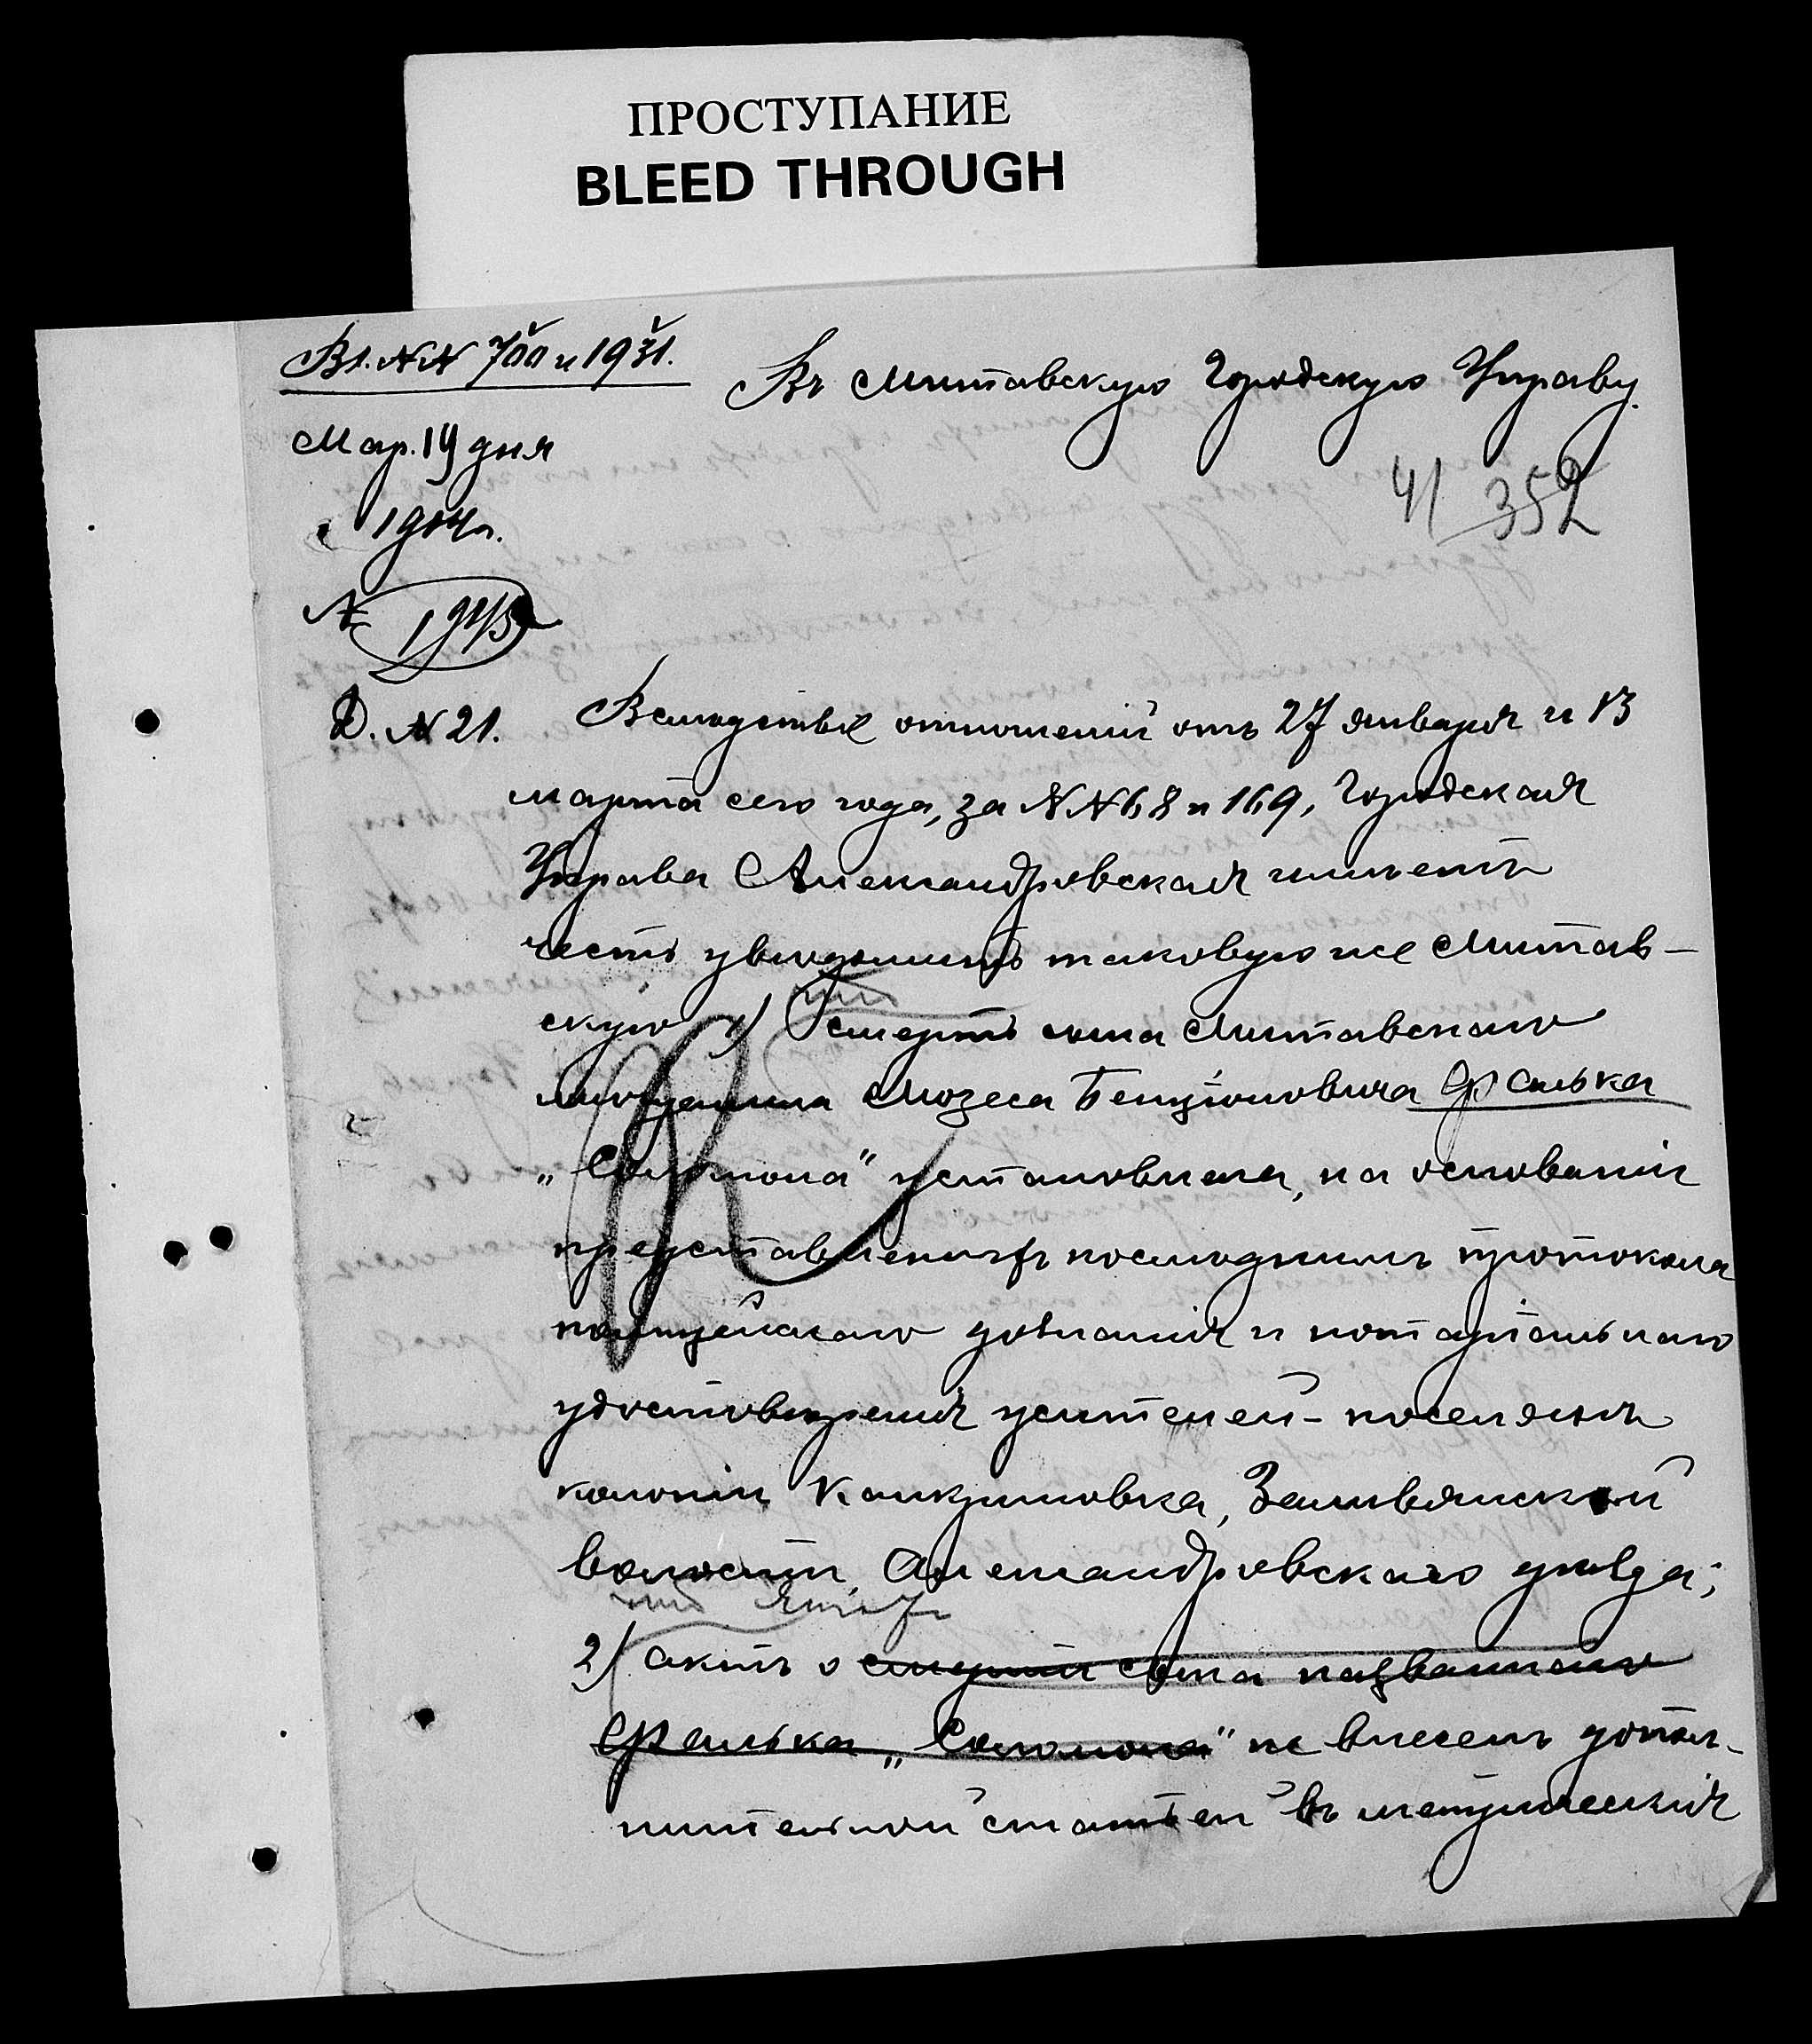 ПРОСТУПАНИЕ
BLEED THROUGH
Вх. NN 700 и 1931.
Въ Митавскую Городскую Управу.
Мар. 19 дня
1904 г.
41 352
N 1945
Д. N 21.
Вслѣдствіе отношеній отъ 27 января и 13
марта сего года, за NN 68 и 169, Городская
Управа Александровская имѣетъ
честь увѣдомить таковую же Митав-
скую 1) смерть сына Митавскаго
мѣщанина Мозеса Бенціоновича Фалька
„Соломона" установлена, на основаніи
представленныхъ послѣднимъ протокола
полицейскаго дознанія и нотаріальнаго
удостовѣренія жителей-поселянъ
колоніи Канкриновка, Заливянской
волости, Александровскаго уѣзда;
2) актъ о смерти сына названнаго
Фалька „Соломона" не внесенъ допол-
нительной статьей въ метрическія